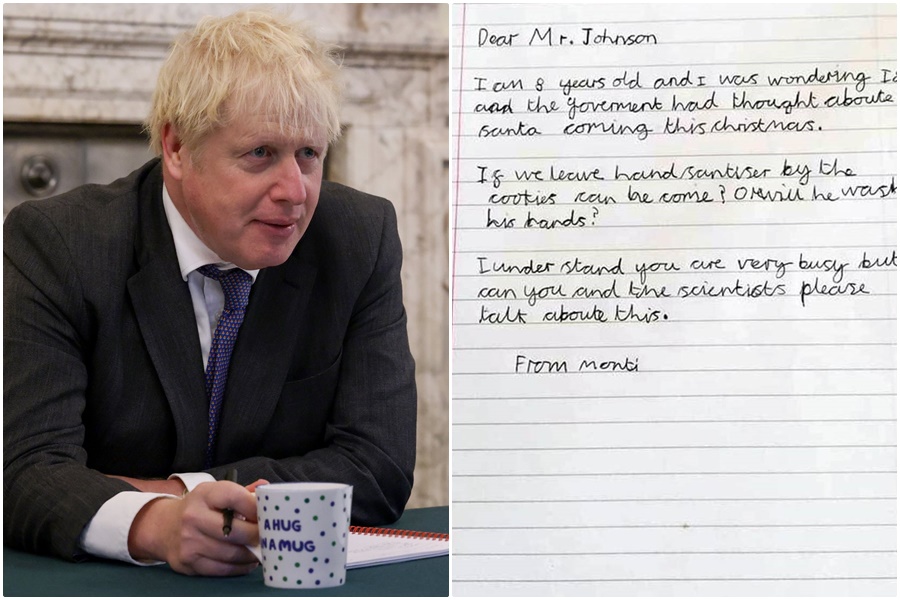 A HUG
IN A MUG
Dear Mr. Johnson
I am 8 years old and I was wondering If
and the goverment had thought aboute
santa coming this christmas.
If we leave hand santiser by the
cookies can he come? Or will he wash
his hands?
I under stand you are very busy but
can you and the scientists please
talk aboute this.
From monti